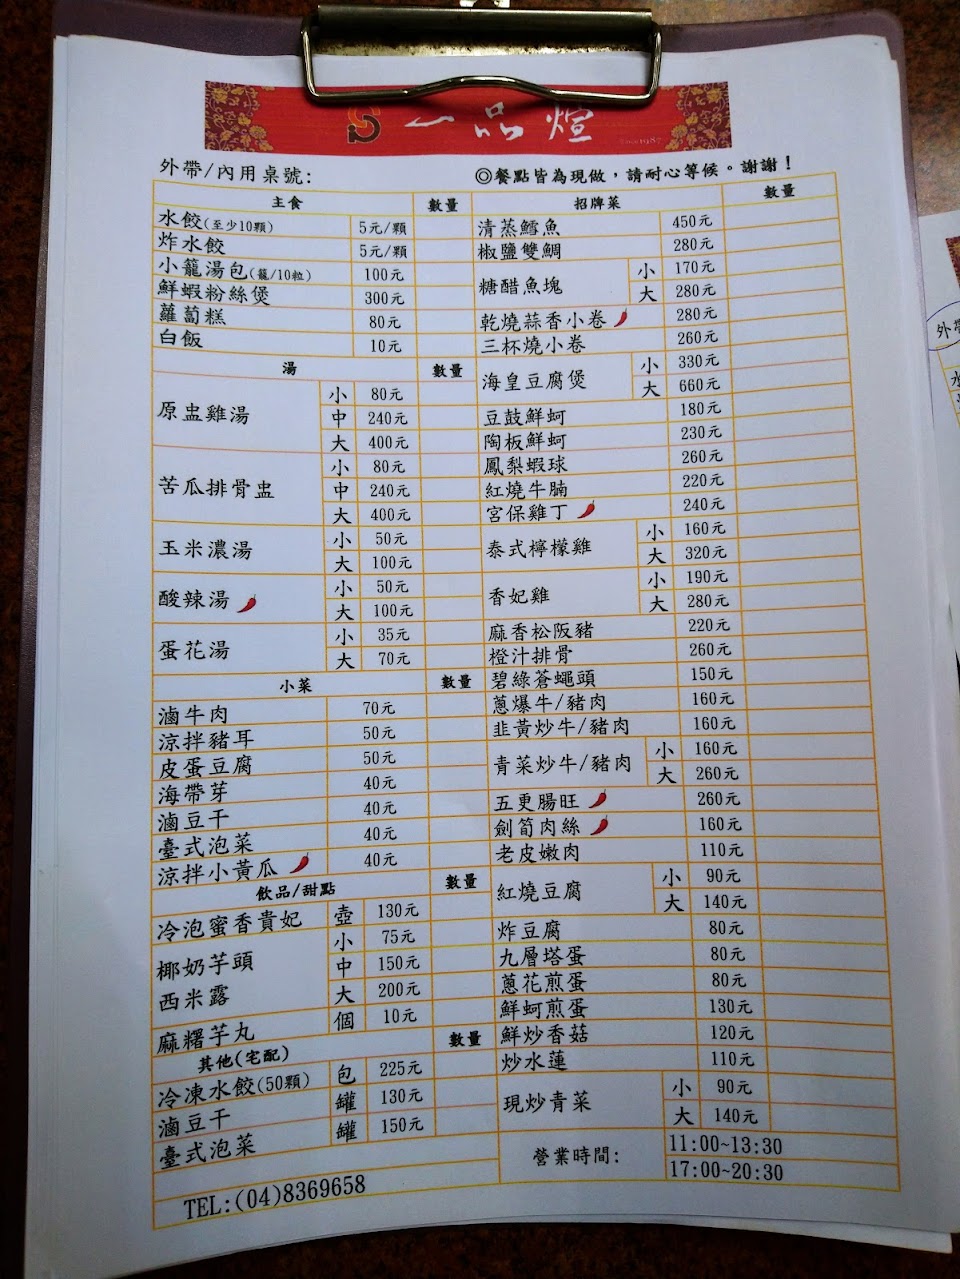 一品煊
since1987
外帶/內用桌號:
◎餐點皆為現做，請耐心等候。謝謝！
主食 數量
水餃(至少10顆) 5元/顆
炸水餃 5元/顆
小籠湯包(籠/10粒) 100元
鮮蝦粉絲煲 300元
蘿蔔糕 80元
白飯 10元
湯 數量
原盅雞湯 小 80元
中 240元
大 400元
苦瓜排骨盅 小 80元
中 240元
大 400元
玉米濃湯 小 50元
大 100元
酸辣湯 小 50元
大 100元
蛋花湯 小 35元
大 70元
小菜 數量
滷牛肉 70元
涼拌豬耳 50元
皮蛋豆腐 50元
海帶芽 40元
滷豆干 40元
臺式泡菜 40元
涼拌小黃瓜 40元
飲品/甜點 數量
冷泡蜜香貴妃 壺 130元
椰奶芋頭西米露 小 75元
中 150元
大 200元
麻糬芋丸 個 10元
其他(宅配) 數量
冷凍水餃(50顆) 包 225元
滷豆干 罐 130元
臺式泡菜 罐 150元
TEL:(04)8369658
招牌菜 數量
清蒸鱈魚 450元
椒鹽雙鯛 280元
糖醋魚塊 小 170元
大 280元
乾燒蒜香小卷 280元
三杯燒小卷 260元
海皇豆腐煲 小 330元
大 660元
豆鼓鮮蚵 180元
陶板鮮蚵 230元
鳳梨蝦球 260元
紅燒牛腩 220元
宮保雞丁 240元
泰式檸檬雞 小 160元
大 320元
香妃雞 小 190元
大 280元
麻香松阪豬 220元
橙汁排骨 260元
碧綠蒼蠅頭 150元
蔥爆牛/豬肉 160元
韭黃炒牛/豬肉 160元
青菜炒牛/豬肉 小 160元
大 260元
五更腸旺 260元
劍筍肉絲 160元
老皮嫩肉 110元
紅燒豆腐 小 90元
大 140元
炸豆腐 80元
九層塔蛋 80元
蔥花煎蛋 80元
鮮蚵煎蛋 130元
鮮炒香菇 120元
炒水蓮 110元
現炒青菜 小 90元
大 140元
營業時間: 11:00~13:30
17:00~20:30
外帶